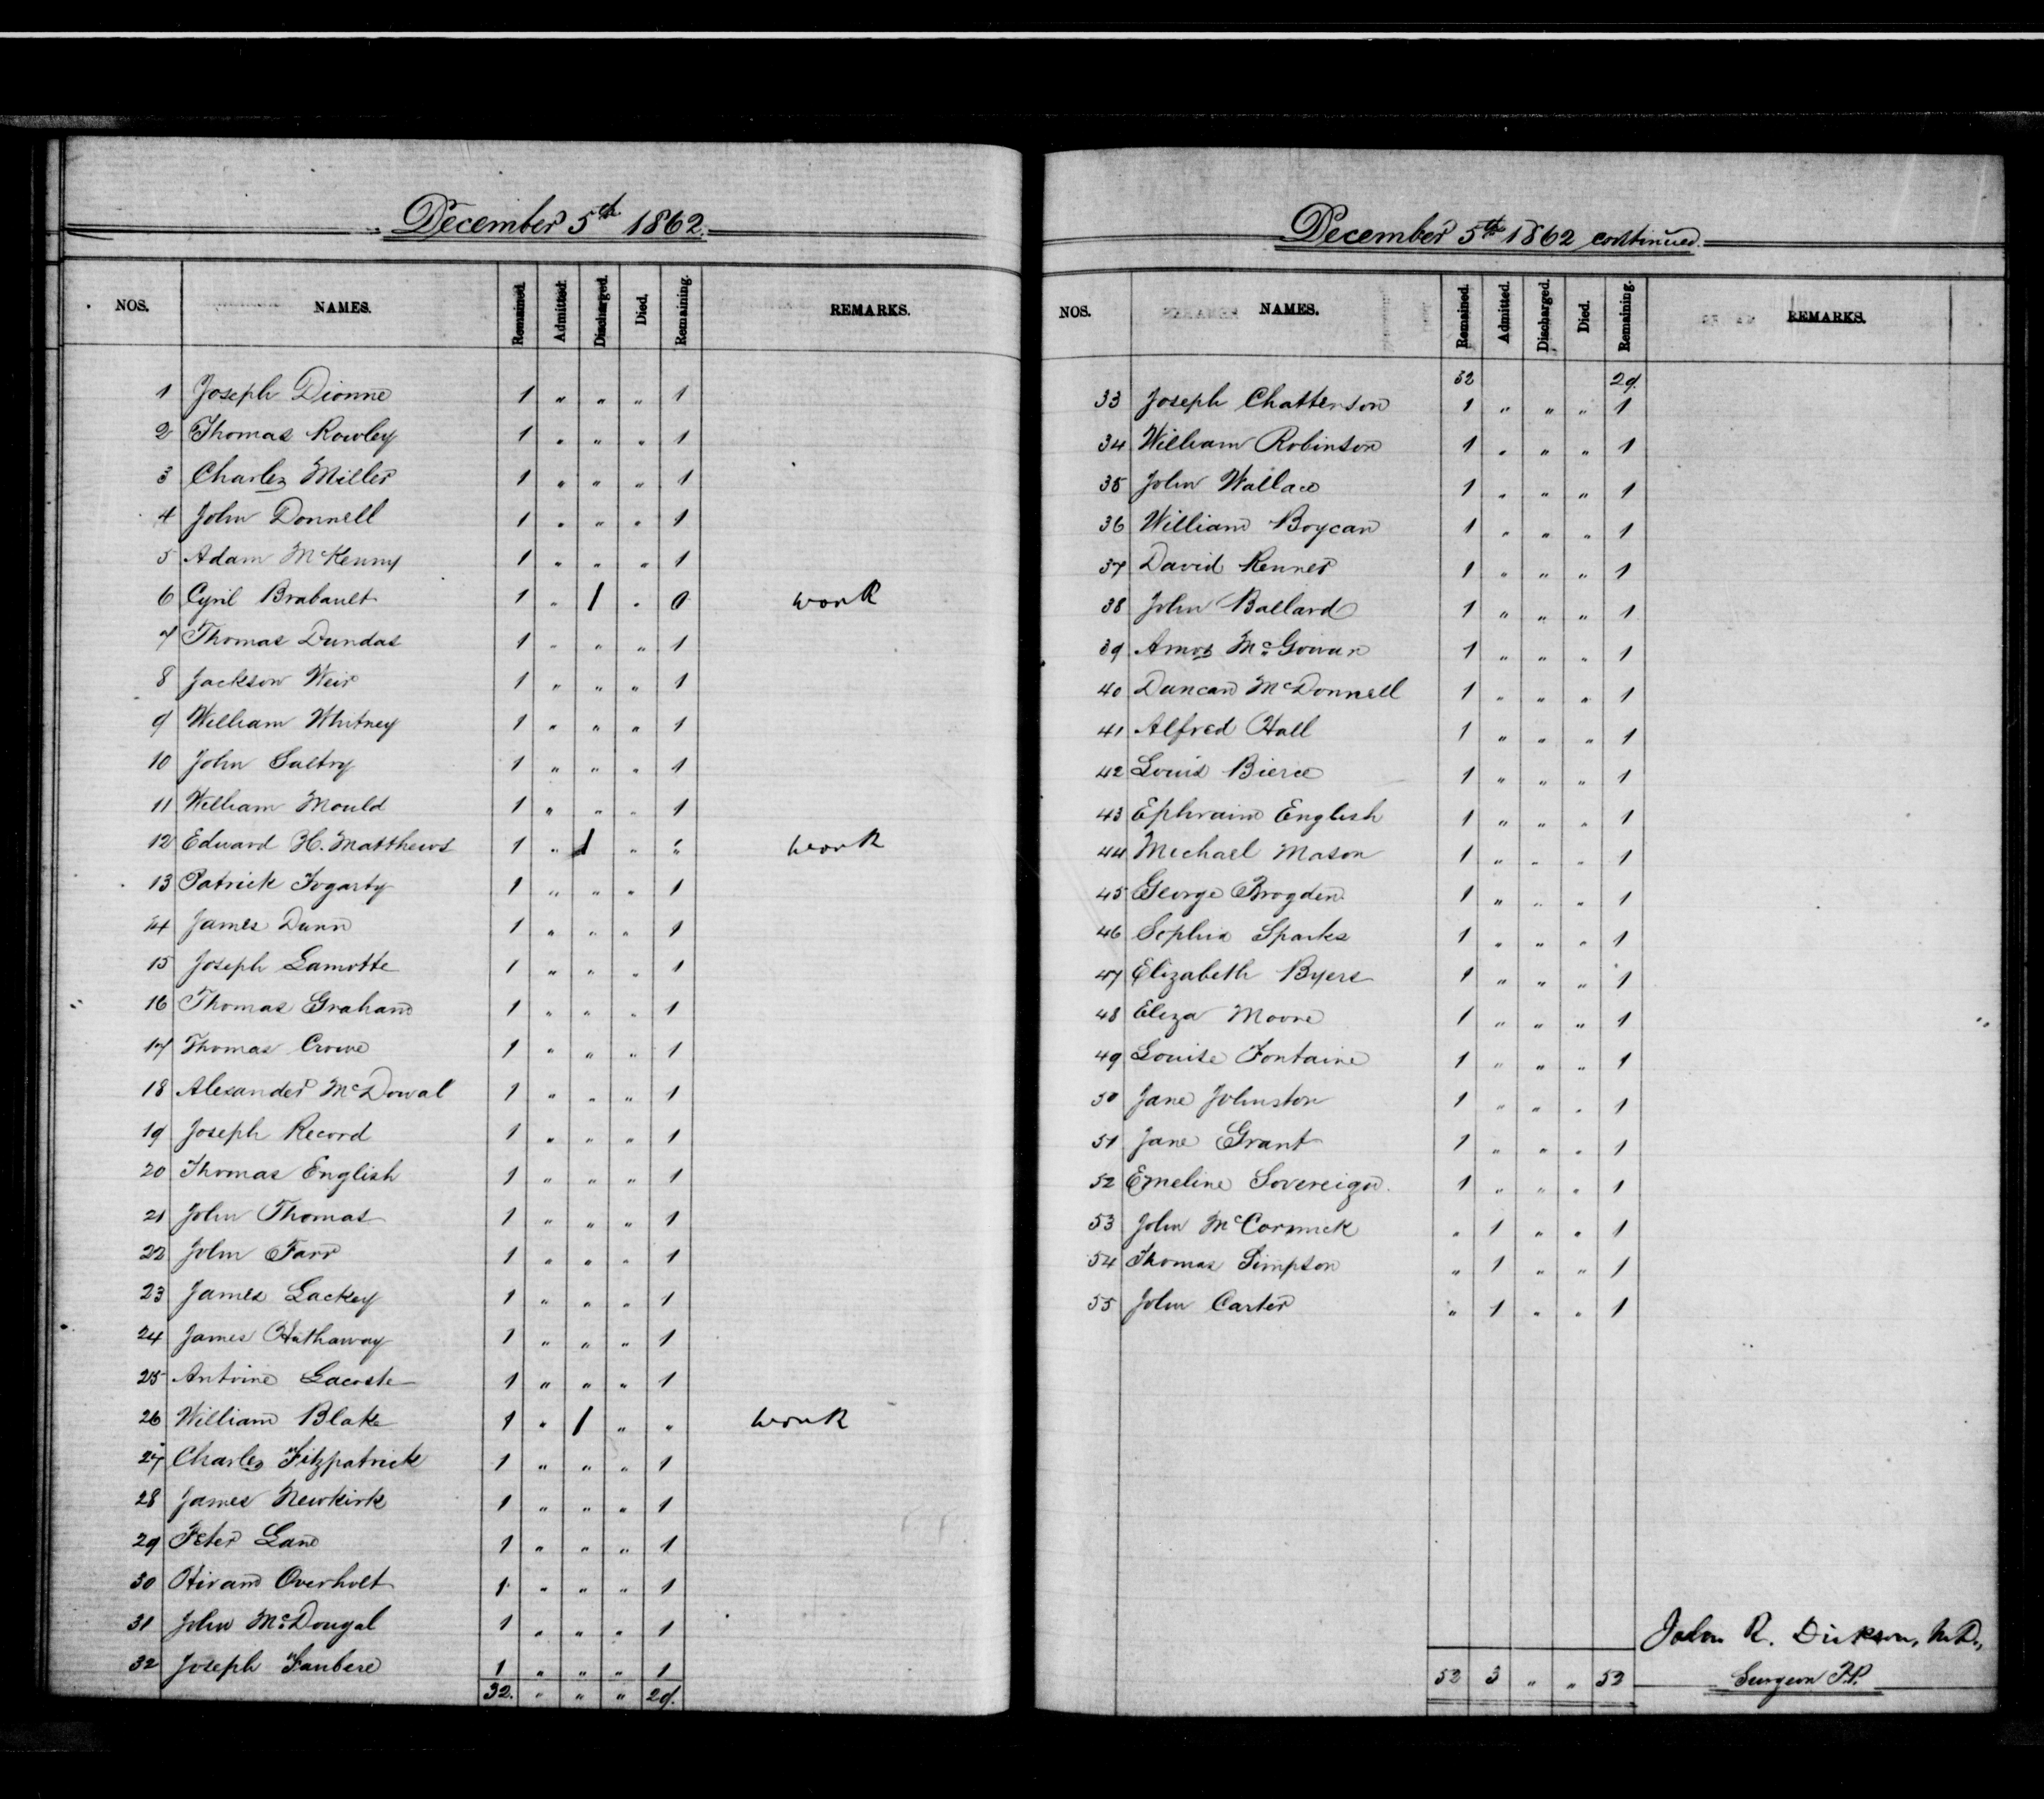 December 5th 1862.
NOS. NAMES. Remained. Admitted. Discharged. Died. Remaining. REMARKS.
1 Joseph Dionne 1 " " " 1
2 Thomas Rowley 1 " " " 1
3 Charles Miller 1 " " " 1
4 John Donnell 1 " " " 1
5 Adam McKenny 1 " " " 1
6 Cyril Brabault 1 " 1 " 0 work
7 Thomas Dundas 1 " " " 1
8 Jackson Weir 1 " " " 1
9 William Whitney 1 " " " 1
10 John Saltry 1 " " " 1
11 William Mould 1 " " " 1
12 Edward H. Matthews 1 " 1 " " work
13 Patrick Fogarty 1 " " " 1
14 James Dunn 1 " " " 1
15 Joseph Lamotte 1 " " " 1
16 Thomas Graham 1 " " " 1
17 Thomas Crowe 1 " " " 1
18 Alexander McDowal 1 " " " 1
19 Joseph Record 1 " " " 1
20 Thomas English 1 " " " 1
21 John Thomas 1 " " " 1
22 John Farr 1 " " " 1
23 James Lackey 1 " " " 1
24 James Hathaway 1 " " " 1
25 Antoine Lacoste 1 " " " 1
26 William Blake 1 " 1 " " work
27 Charles Fitzpatrick 1 " " " 1
28 James Newkirk 1 " " " 1
29 Peter Lane 1 " " " 1
30 Hiram Overholt 1 " " " 1
31 John McDougal 1 " " " 1
32 Joseph Faubere 1 " " " 1
32. " " " 29.
December 5th 1862 continued.
NOS. NAMES. Remained. Admitted. Discharged. Died. Remaining. REMARKS.
32 29.
33 Joseph Chatterson 1 " " " 1
34 William Robinson 1 " " " 1
35 John Wallace 1 " " " 1
36 William Boycan 1 " " " 1
37 David Renner 1 " " " 1
38 John Ballard 1 " " " 1
39 Amos McGowan 1 " " " 1
40 Duncan McDonnell 1 " " " 1
41 Alfred Hall 1 " " " 1
42 Louis Bierce 1 " " " 1
43 Ephraim English 1 " " " 1
44 Michael Mason 1 " " " 1
45 George Brogden 1 " " " 1
46 Sophia Sparks 1 " " " 1
47 Elizabeth Byers 1 " " " 1
48 Eliza Moore 1 " " " 1
49 Louise Fontaine 1 " " " 1
50 Jane Johnston 1 " " " 1
51 Jane Grant 1 " " " 1
52 Emeline Sovereign 1 " " " 1
53 John McCormick " 1 " " 1
54 Thomas Simpson " 1 " " 1
55 John Carter " 1 " " 1
John R. Dickson, M.D.,
52 3 " " 52 Surgeon P.P.